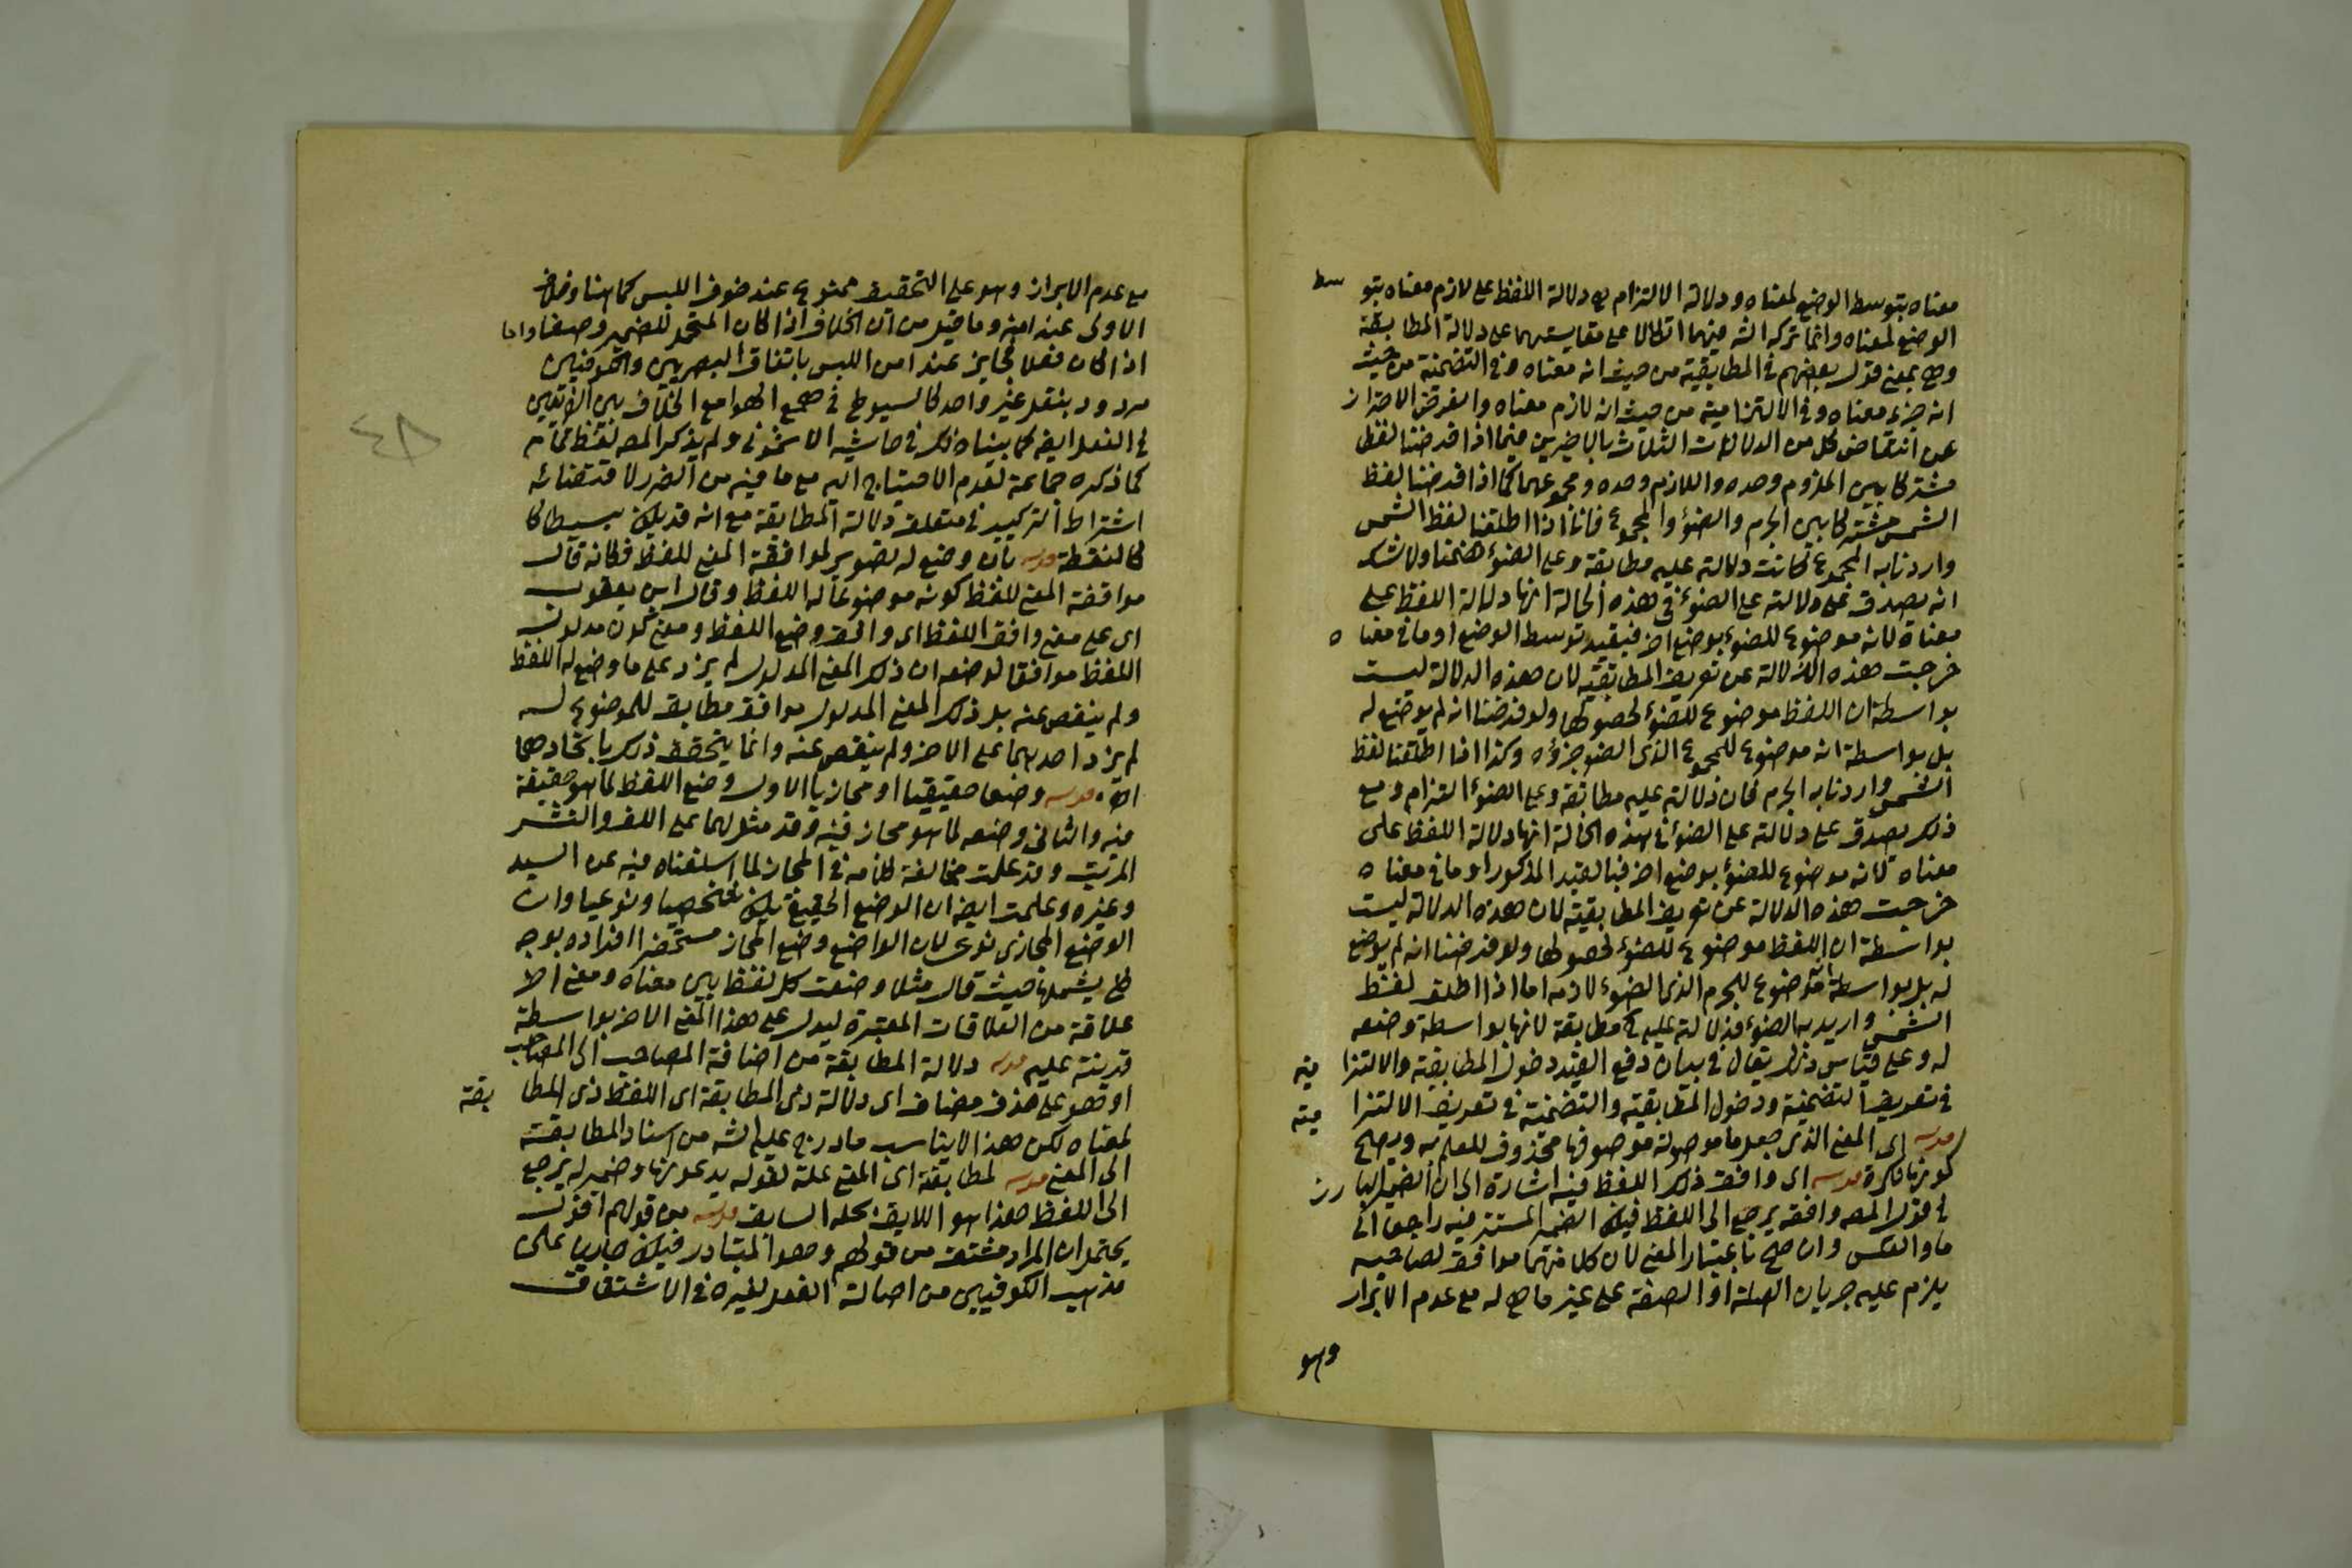 معناه بتوسط الوضع لمعناه ودلالة الالتزام هي دلالة اللفظ على لازم معناه بتوسط
الوضع لمعناه وانما تركه الشه فيهما اتكالا على مقايستهما على دلالة المطابقة
وهو بمعنى قول بعضهم في المطابقية من حيث انه معناه وفي التضمنية من حيث
انه جزء معناه وفي الالتزامية من حيث انه لازم معناه والغرض الاحتراز
عن انتقاض كل من الدلالات الثلاث بالاخيرين فيما اذا فرضنا لفظا
مشتركا بين الملزوم وحده واللازم وحده ومجموعهما كما اذا فرضنا لفظ
الشمس مشتركا بين الجرم والضوء والمجموع فاننا اذا اطلقنا لفظ الشمس
واردنا به المجموع كانت دلالته عليه مطابقة وعلى الضوء تضمنا ولا شك
انه يصدق على دلالته على الضوء في هذه الحالة انها دلالة اللفظ على
معناه لانه موضوع للضوء بوضع اخر فبقيد توسط الوضع او ما في معناه
خرجت هذه الدلالة عن تعريف المطابقية لان هذه الدلالة ليست
بواسطة ان اللفظ موضوع للضوء لحصولها ولو فرضنا انه لم يوضع له
بل بواسطة انه موضوع للمجموع الذى الضوء جزؤه وكذا اذا اطلقنا لفظ
الشمس واردنا به الجرم فان دلالته عليه مطابقة وعلى الضوء التزام ومع
ذلك يصدق على دلالته على الضوء في هذه الحالة انها دلالة اللفظ على
معناه لانه موضوع للضوء بوضع اخر فبالقيد المذكور او ما في معناه
خرجت هذه الدلالة عن تعريف المطابقية لان هذه الدلالة ليست
بواسطة ان اللفظ موضوع للضوء لحصولها ولو فرضنا انه لم يوضع
له بل بواسطة انه موضوع للجرم الذى الضوء لازمه اما اذا اطلق لفظ
الشمس واريد به الضوء فدلالته عليه مطابقة لانها بواسطة وضعه
له وعلى قياس ذلك يقال في بيان دفع القيد دخول المطابقية والالتزامية
في تعريف التضمنية ودخول المطابقية والتضمنية في تعريف الالتزامية
قوله اى المعنى الذى جعل ما موصولة موصوفها محذوف للعلم به ويصلح
كونها نكرة قوله اى وافق ذلك اللفظ فيه اشارة الى ان الضمير البارز
في قول المص وافقه يرجع الى اللفظ فيكون الضمير المستتر فيه راجعا الى
ما والعكس وان صح باعتبار المعنى لان كلا منهما موافق لصاحبه
يلزم عليه جريان الصلة او الصفة على غير ما هي له مع عدم الابراز
وهو
مع عدم الابراز وهو على التحقيق ممنوع عند خوف اللبس كما هنا وخلاف
الاولى عند امنه وما قيل من ان الخلاف اذا كان المتحمل للضمير وصفا واما
اذا كان فعلا فجايز عند امن اللبس باتفاق البصريين والكوفيين
مردود بنقل غير واحد كالسيوطي في همع الهوامع الخلاف بين الفريقين
في الفعل ايضا كما بيناه ذلك في حاشية الاشموني ولم يذكر المص لفظ تمام
كما ذكره جماعة لعدم الاحتياج اليه مع ما فيه من الضرر لاقتضائه
اشتراط التركيب في متعلق دلالة المطابقة مع انه قد يكون بسيطا
كالنقطة قوله بان وضع له تصوير لموافقة المعنى للفظ فكانه قال
موافقة المعنى للفظ كونه موضوعا له اللفظ وقال ابن يعقوب
اى على معنى وافق اللفظ اى وافق وضع اللفظ ومعنى كون مدلول
اللفظ موافقا لوضعه ان ذلك المعنى المدلول لم يزد على ما وضع له اللفظ
ولم ينقص عنه بل ذلك المعنى المدلول موافق مطابق للموضوع له
لم يزد احدهما على الاخر ولم ينقص عنه وانما يتحقق ذلك باتحادهما
اه قوله وضعا حقيقيا او مجازيا الاول وضع اللفظ لما هو حقيقة
فيه والثاني وضعه لما هو مجاز فيه وقد مثل لهما على اللف والنشر
المرتب وقد علمت مخالفة كلامه في المجاز لما اسلفناه فيه عن السيد
وغيره وعلمت ايضا ان الوضع الحقيقي يكون شخصيا ونوعيا وان
الوضع المجازى نوعى لان الواضع وضع المجاز مستحضرا افراده بوجه
كلي يشملها حيث قال مثلا وضعت كل لفظ بين معناه ومعنى اخر
علاقة من العلاقات المعتبرة ليدل على هذا المعنى الاخر بواسطة
قرينة عليه قوله دلالة المطابقة من اضافة المصاحب الى المصاحب
او هو على حذف مضاف اى دلالة ذى المطابقة اى اللفظ ذى المطابقة
لمعناه لكن هذا لا يناسب ما درج عليه الشه من اسناد المطابقة
الى المعنى قوله لمطابقة اى المعنى علة لقوله يدعونها وضمير له يرجع
الى اللفظ هذا هو اللايق بحله السابق قوله من قولهم اقول
يحتمل ان المراد مشتق من قولهم وهو المتبادر فيكون جاريا على
مذهب الكوفيين من اصالة الفعل لغيره في الاشتقاق
٤٨